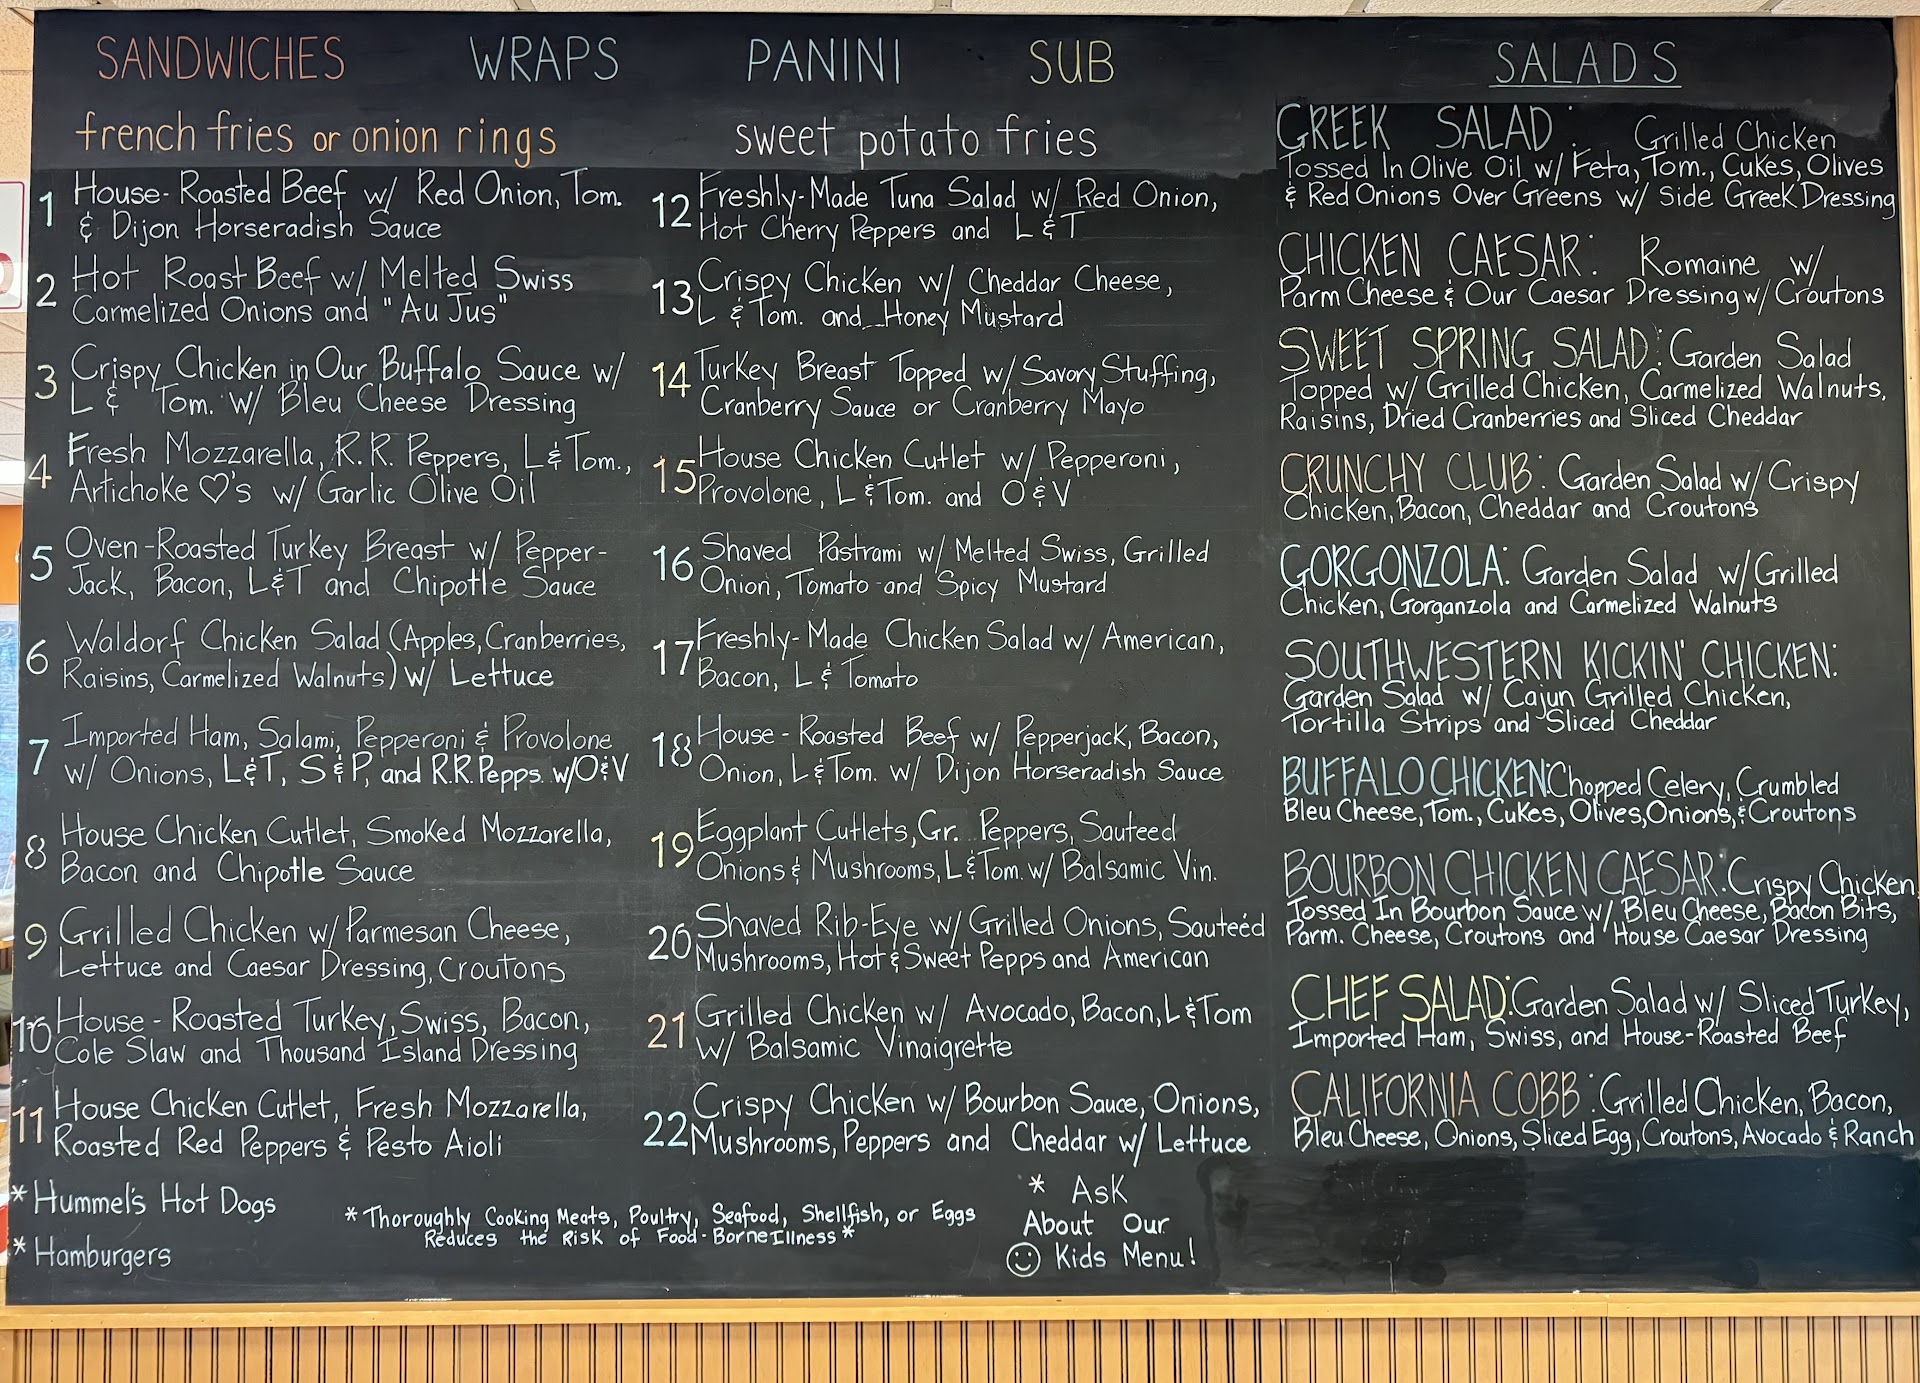 SANDWICHES WRAPS PANINI SUB
french fries or onion rings sweet potato fries
1 House-Roasted Beef w/ Red Onion, Tom.
& Dijon Horseradish Sauce
2 Hot Roast Beef w/ Melted Swiss
Carmelized Onions and "Au Jus"
3 Crispy Chicken in Our Buffalo Sauce w/
L & Tom. w/ Bleu Cheese Dressing
4 Fresh Mozzarella, R.R. Peppers, L & Tom.,
Artichoke ♡'s w/ Garlic Olive Oil
5 Oven-Roasted Turkey Breast w/ Pepper-
Jack, Bacon, L & T and Chipotle Sauce
6 Waldorf Chicken Salad (Apples, Cranberries,
Raisins, Carmelized Walnuts) w/ Lettuce
7 Imported Ham, Salami, Pepperoni & Provolone
w/ Onions, L & T, S & P, and R.R. Pepps. w/ O & V
8 House Chicken Cutlet, Smoked Mozzarella,
Bacon and Chipotle Sauce
9 Grilled Chicken w/ Parmesan Cheese,
Lettuce and Caesar Dressing, Croutons
10 House-Roasted Turkey, Swiss, Bacon,
Cole Slaw and Thousand Island Dressing
11 House Chicken Cutlet, Fresh Mozzarella,
Roasted Red Peppers & Pesto Aioli
* Hummel's Hot Dogs
* Hamburgers
12 Freshly-Made Tuna Salad w/ Red Onion,
Hot Cherry Peppers and L & T
13 Crispy Chicken w/ Cheddar Cheese,
L & Tom. and Honey Mustard
14 Turkey Breast Topped w/ Savory Stuffing,
Cranberry Sauce or Cranberry Mayo
15 House Chicken Cutlet w/ Pepperoni,
Provolone, L & Tom. and O & V
16 Shaved Pastrami w/ Melted Swiss, Grilled
Onion, Tomato and Spicy Mustard
17 Freshly-Made Chicken Salad w/ American,
Bacon, L & Tomato
18 House-Roasted Beef w/ Pepperjack, Bacon,
Onion, L & Tom. w/ Dijon Horseradish Sauce
19 Eggplant Cutlets, Gr. Peppers, Sauteed
Onions & Mushrooms, L & Tom. w/ Balsamic Vin.
20 Shaved Rib-Eye w/ Grilled Onions, Sauteéd
Mushrooms, Hot & Sweet Pepps and American
21 Grilled Chicken w/ Avocado, Bacon, L & Tom
w/ Balsamic Vinaigrette
22 Crispy Chicken w/ Bourbon Sauce, Onions,
Mushrooms, Peppers and Cheddar w/ Lettuce
* Thoroughly Cooking Meats, Poultry, Seafood, Shellfish, or Eggs
Reduces the Risk of Food-Borne Illness *
* Ask
About Our
Kids Menu!
SALADS
GREEK SALAD: Grilled Chicken
Tossed In Olive Oil w/ Feta, Tom., Cukes, Olives
& Red Onions Over Greens w/ Side Greek Dressing
CHICKEN CAESAR: Romaine w/
Parm Cheese & Our Caesar Dressing w/ Croutons
SWEET SPRING SALAD: Garden Salad
Topped w/ Grilled Chicken, Carmelized Walnuts,
Raisins, Dried Cranberries and Sliced Cheddar
CRUNCHY CLUB: Garden Salad w/ Crispy
Chicken, Bacon, Cheddar and Croutons
GORGONZOLA: Garden Salad w/ Grilled
Chicken, Gorganzola and Carmelized Walnuts
SOUTHWESTERN KICKIN' CHICKEN:
Garden Salad w/ Cajun Grilled Chicken,
Tortilla Strips and Sliced Cheddar
BUFFALO CHICKEN: Chopped Celery, Crumbled
Bleu Cheese, Tom., Cukes, Olives, Onions, & Croutons
BOURBON CHICKEN CAESAR: Crispy Chicken
Tossed In Bourbon Sauce w/ Bleu Cheese, Bacon Bits,
Parm. Cheese, Croutons and House Caesar Dressing
CHEF SALAD: Garden Salad w/ Sliced Turkey,
Imported Ham, Swiss, and House-Roasted Beef
CALIFORNIA COBB: Grilled Chicken, Bacon,
Bleu Cheese, Onions, Sliced Egg, Croutons, Avocado & Ranch